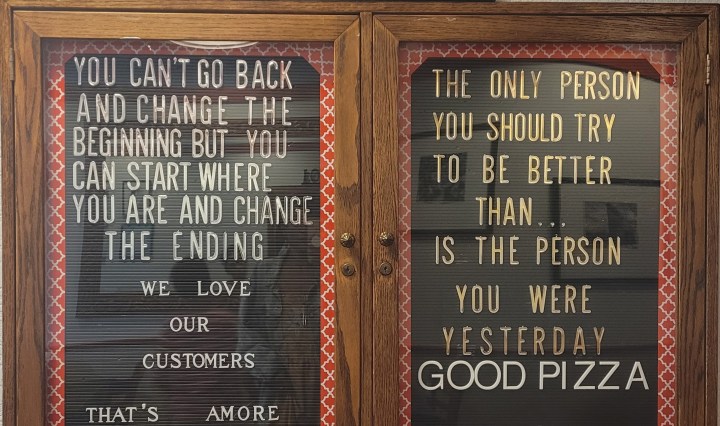 YOU CAN'T GO BACK
AND CHANGE THE
BEGINNING BUT YOU
CAN START WHERE
YOU ARE AND CHANGE
THE ENDING
WE LOVE
OUR
CUSTOMERS
THAT'S AMORE
THE ONLY PERSON
YOU SHOULD TRY
TO BE BETTER
THAN...
IS THE PERSON
YOU WERE
YESTERDAY
GOOD PIZZA